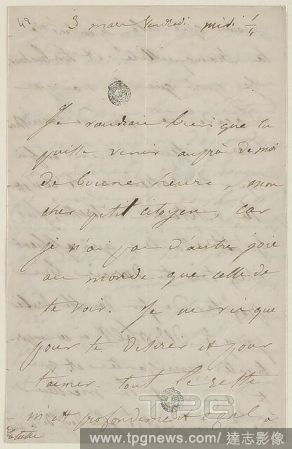 49
3 mars Vendredi midi 1/4
Je voudrais bien que tu
puisse venir auprès de moi
de bonne heure, mon
cher petit citoyen, car
je n'ai pas d'autre joie
au monde que celle de
te voir. Je ne vis que
pour te désirer et pour
t'aimer. tout le reste
m'est profondément égal à
TPG
www.tpgnews.com/ 達志影像